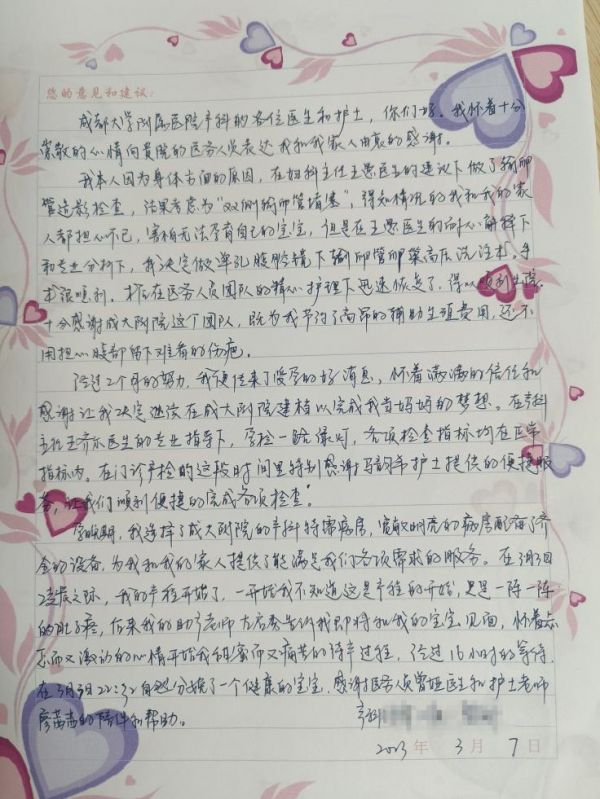 您的意见和建议:
成都大学附属医院产科的各位医生和护士,你们好。我怀着十分
崇敬的心情向贵院的医务人员表达我和我家人由衷的感谢。
我本人因为身体方面的原因,在妇科主任王思医生的建议下做了输卵
管造影检查,结果考虑为"双侧输卵管堵塞",得知情况的我和我的家
人都担心不已,害怕无法孕育自己的宝宝,但是在王思医生的耐心解释下
和专业分析下,我决定做单孔腹腔镜下输卵管卵巢高压洗注术。手
术很顺利。术后在医务人员团队的精心护理下迅速恢复了,得以顺利出院
十分感谢成大附院这个团队,既为我节约了高昂的辅助生殖费用,还不
用担心腹部留下难看的伤疤。
经过2个月的努力,我便传来了受孕的好消息,怀着满满的信任和
感谢让我决定继续在成大附院建档以完成我当妈妈的梦想。在产科
主任王医生的专业指导下,孕检一路绿灯,各项检查指标均在正常
指标内。在门诊产检的这段时间里特别感谢马韵希护士提供的便捷服
务,让我们顺利便捷的完成各项检查。
孕晚期,我选择了成大附院的产科特需病房,宽敞明亮的病房配备了齐
全的设备,为我和我的家人提供了能满足我们各项需求的服务。在3月3日
凌晨之际,我的产程开始了,一开始我不知道这是产程的开始,只是一阵一阵
的肚子疼,后来我的助产老师告诉我即将和我的宝宝见面,怀着忐
忑而又激动的心情开始我甜蜜而又痛苦的待产过程,经过16小时的等待,
在3月3日22:32自然分娩了一个健康的宝宝,感谢医务人员曾娅医生和护士老师
廖茜的陪伴和帮助。
产科
2023年3月7日